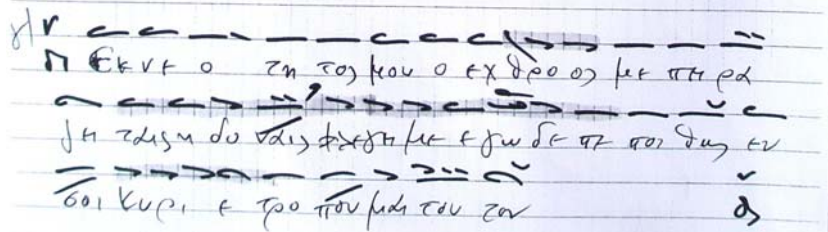 Εκ νε ο τη τος μου ο εχ θρο ος με πει ρα
ζει ταις η δο ναις φλεγει με ε γω δε πε ποι θως εν
σοι Κυρι ε τρο που μαι του τον